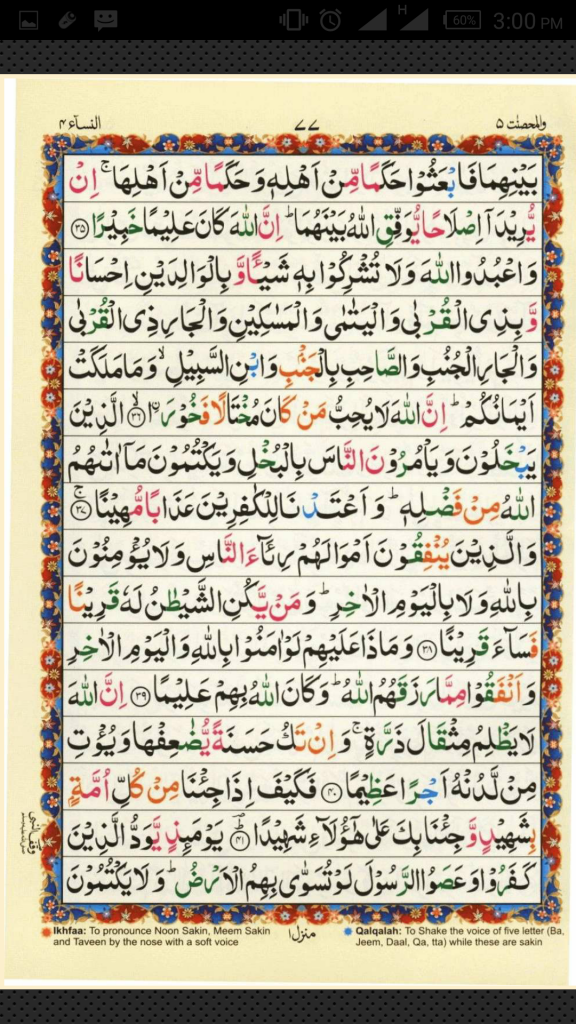 60% 3:00 PM
H
والمحصنت ۵
۷۷
النسآء ۴
بَيْنِهِمَا فَابْعَثُوْا حَكَمًا مِّنْ اَهْلِهٖ وَحَكَمًا مِّنْ اَهْلِهَا ۚ اِنْ
يُّرِيْدَاۤ اِصْلَاحًا يُّوَفِّقِ اللّٰهُ بَيْنَهُمَا ؕ اِنَّ اللّٰهَ كَانَ عَلِيْمًا خَبِيْرًا ﴿۳۵﴾
وَاعْبُدُوا اللّٰهَ وَلَا تُشْرِكُوْا بِهٖ شَيْـًٔا وَّ بِالْوَالِدَيْنِ اِحْسَانًا
وَّ بِذِى الْقُرْبٰى وَالْيَتٰمٰى وَالْمَسٰكِيْنِ وَالْجَارِ ذِى الْقُرْبٰى
وَالْجَارِ الْجُنُبِ وَالصَّاحِبِ بِالْجَنْۢبِ وَابْنِ السَّبِيْلِ ۙ وَمَا مَلَكَتْ
اَيْمَانُكُمْ ؕ اِنَّ اللّٰهَ لَا يُحِبُّ مَنْ كَانَ مُخْتَالًا فَخُوْرَا ۨ ﴿۳۶﴾ ۙ الَّذِيْنَ
يَبْخَلُوْنَ وَيَاْمُرُوْنَ النَّاسَ بِالْبُخْلِ وَيَكْتُمُوْنَ مَاۤ اٰتٰٮهُمُ
اللّٰهُ مِنْ فَضْلِهٖ ؕ وَ اَعْتَدْنَا لِلْكٰفِرِيْنَ عَذَابًا مُّهِيْنًا ۚ ﴿۳۷﴾
وَالَّذِيْنَ يُنْفِقُوْنَ اَمْوَالَهُمْ رِئَآءَ النَّاسِ وَلَا يُؤْمِنُوْنَ
بِاللّٰهِ وَلَا بِالْيَوْمِ الْاٰخِرِ ؕ وَمَنْ يَّكُنِ الشَّيْطٰنُ لَهٗ قَرِيْنًا
فَسَآءَ قَرِيْنًا ﴿۳۸﴾ وَمَاذَا عَلَيْهِمْ لَوْ اٰمَنُوْا بِاللّٰهِ وَالْيَوْمِ الْاٰخِرِ
وَاَنْفَقُوْا مِمَّا رَزَقَهُمُ اللّٰهُ ؕ وَكَانَ اللّٰهُ بِهِمْ عَلِيْمًا ﴿۳۹﴾ اِنَّ اللّٰهَ
لَا يَظْلِمُ مِثْقَالَ ذَرَّةٍ ۚ وَاِنْ تَكُ حَسَنَةً يُّضٰعِفْهَا وَيُؤْتِ
مِنْ لَّدُنْهُ اَجْرًا عَظِيْمًا ﴿۴۰﴾ فَكَيْفَ اِذَا جِئْنَا مِنْ كُلِّ اُمَّةٍۭ
بِشَهِيْدٍ وَّجِئْنَا بِكَ عَلٰى هٰٓؤُلَآءِ شَهِيْدًا ؕ ﴿۴۱﴾ يَوْمَئِذٍ يَّوَدُّ الَّذِيْنَ
كَفَرُوْا وَعَصَوُا الرَّسُوْلَ لَوْ تُسَوّٰى بِهِمُ الْاَرْضُ ؕ وَلَا يَكْتُمُوْنَ
Ikhfaa: To pronounce Noon Sakin, Meem Sakin
and Taveen by the nose with a soft voice
منزل ۱
Qalqalah: To Shake the voice of five letter (Ba,
Jeem, Daal, Qa, tta) while these are sakin